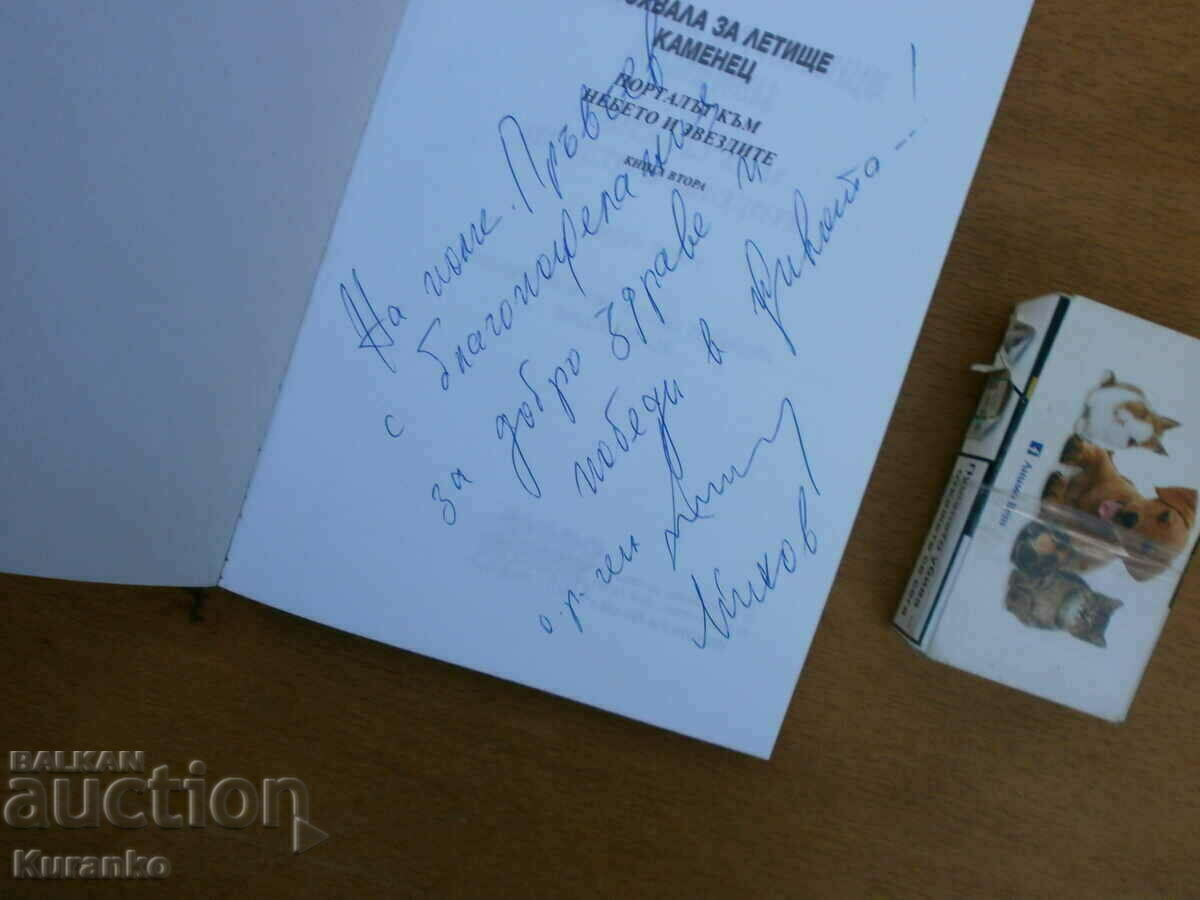 ХВАЛА ЗА ЛЕТИЩЕ
КАМЕНЕЦ
ПОРТАЛЪТ КЪМ
НЕБЕТО И ЗВЕЗДИТЕ
КНИГА ВТОРА
На полк. Първев
с благопожелания
за добро здраве и
победи в
о.р. ген
Михов
BALKAN
auction
Kuranko